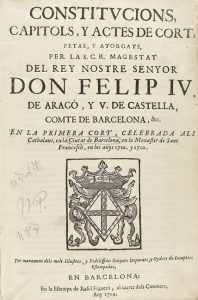 CONSTITUCIONS,
CAPITOLS, Y ACTES DE CORT,
FETAS, Y ATORGATS,
PER LA S.C.R. MAGESTAT
DEL REY NOSTRE SENYOR
DON FELIP IV.
DE ARAGÓ, Y V. DE CASTELLA,
COMTE DE BARCELONA, &c.
EN LA PRIMERA CORT, CELEBRADA ALS
Cathalans, en la Ciutat de Barcelona, en lo Monastir de Sant
Francesch, en los anys 1701. y 1702.
Per manament dels molt Illustres, y Fidelissims Senyors Deputats, y Oydors de Comptes:
Estampadas,
EN BARCELONA:
En la Estampa de Rafel Figuerò, al carrer dels Cotoners,
Any 1702.